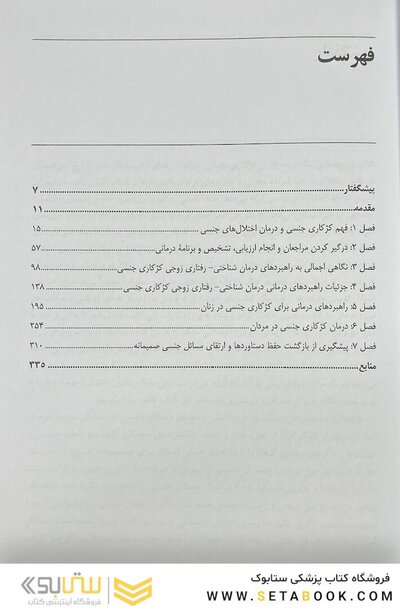 فهرست
پیشگفتار ۷
مقدمه ۱۱
فصل ۱: فهم کژکاری جنسی و درمان اختلال‌های جنسی ۱۵
فصل ۲: درگیر کردن مراجعان و انجام ارزیابی، تشخیص و برنامهٔ درمانی ۵۷
فصل ۳: نگاهی اجمالی به راهبردهای درمان شناختی- رفتاری زوجی کژکاری جنسی ۹۸
فصل ۴: جزئیات راهبردهای درمانی درمان شناختی- رفتاری زوجی کژکاری جنسی ۱۳۸
فصل ۵: راهبردهای درمانی برای کژکاری جنسی در زنان ۱۹۵
فصل ۶: درمان کژکاری جنسی در مردان ۲۵۴
فصل ۷: پیشگیری از بازگشت حفظ دستاوردها و ارتقای مسائل جنسی صمیمانه ۳۱۰
منابع ۳۳۵
فروشگاه کتاب پزشکی ستابوک
WWW.SETABOOK.COM
ستابوک
فروشگاه اینترنتی کتاب